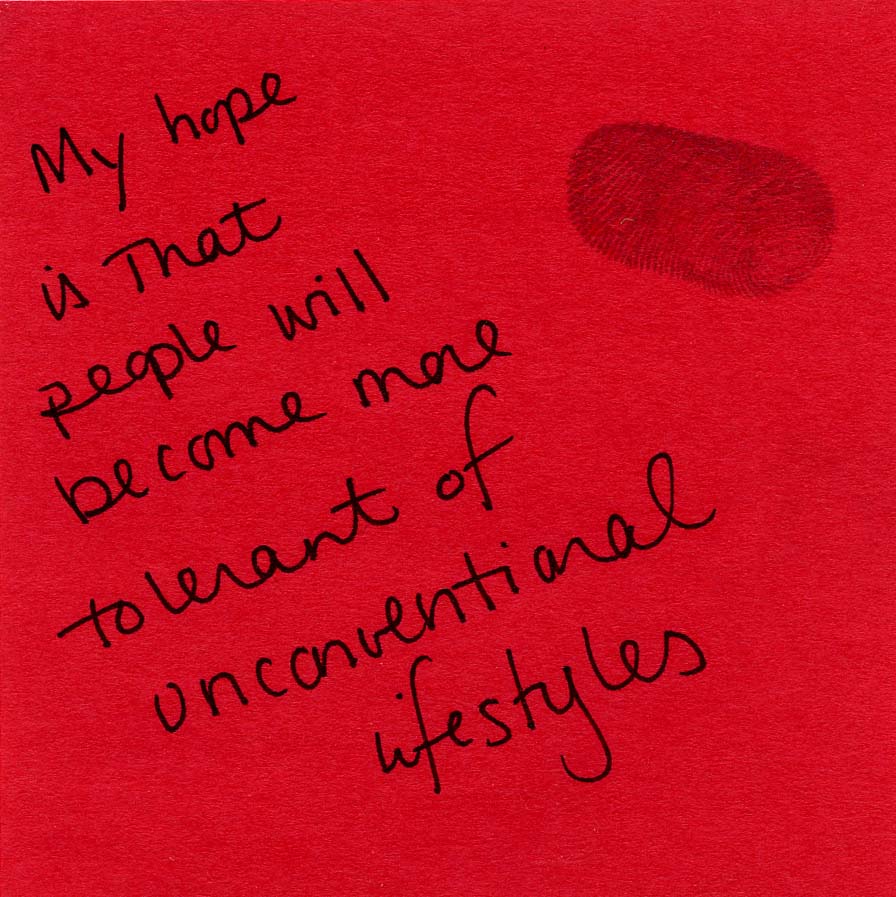 My hope
is That
people will
become more
tolerant of
unconventional
lifestyles